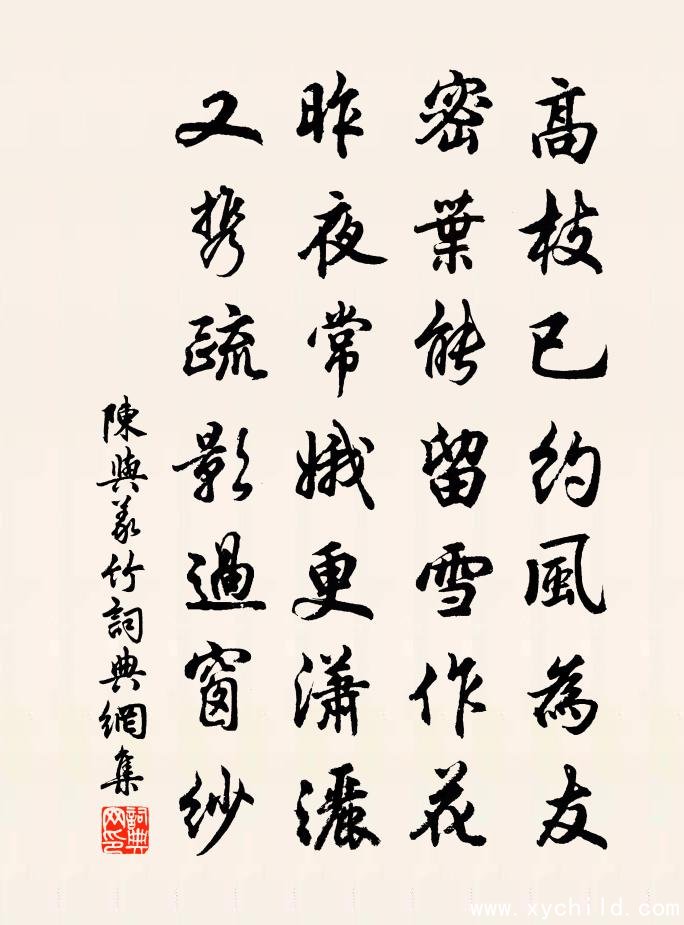 高枝已約風為友
密葉能留雪作花
昨夜常娥更瀟灑
又携疏影過窗紗
陳與義竹詞典網集
詞典網印
www.xychild.com